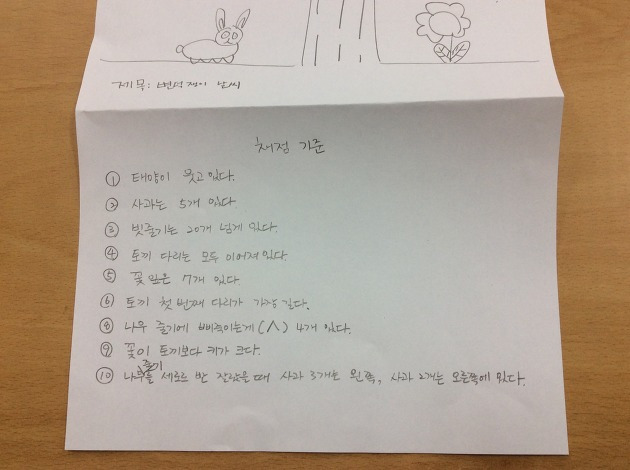 제목: 변덕쟁이 날씨
채점 기준
① 태양이 웃고 있다.
② 사과는 5개 있다
③ 빗줄기는 20개 넘게 있다.
④ 토끼 다리는 모두 이어져있다.
⑤ 꽃잎은 7개 있다.
⑥ 토끼 첫 번째 다리가 가장 길다.
⑧ 나무 줄기에 삐쭉이는게 (∧) 4개 있다.
⑨ 꽃이 토끼보다 키가 크다.
⑩ 나무줄기를 세로로 반 잘랐을 때 사과 3개는 왼쪽, 사과 2개는 오른쪽에 있다.